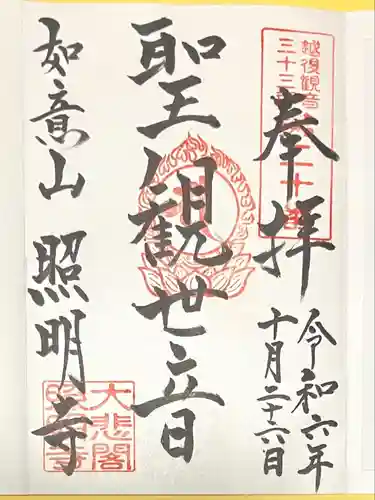 奉拝
令和六年
十月二十六日
越後観音
三十三
聖観世音
如意山 照明寺
大悲閣